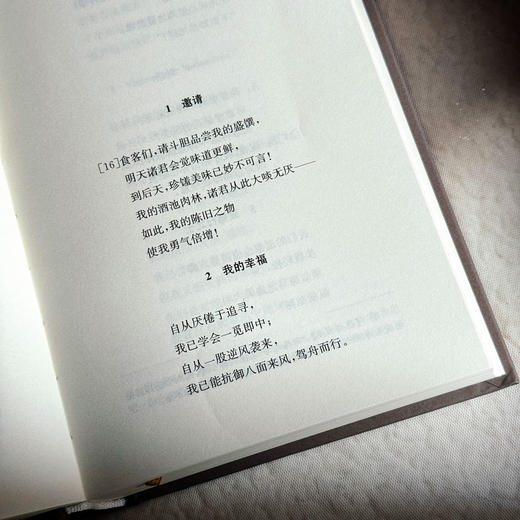 1 邀请
[16]食客们，请斗胆品尝我的盛馔，
明天诸君会觉味道更鲜，
到后天，珍馐美味已妙不可言！
我的酒池肉林，诸君从此大啖无厌——
如此，我的陈旧之物
使我勇气倍增！
2 我的幸福
自从厌倦于追寻，
我已学会一觅即中；
自从一股逆风袭来，
我已能抗御八面来风，驾舟而行。